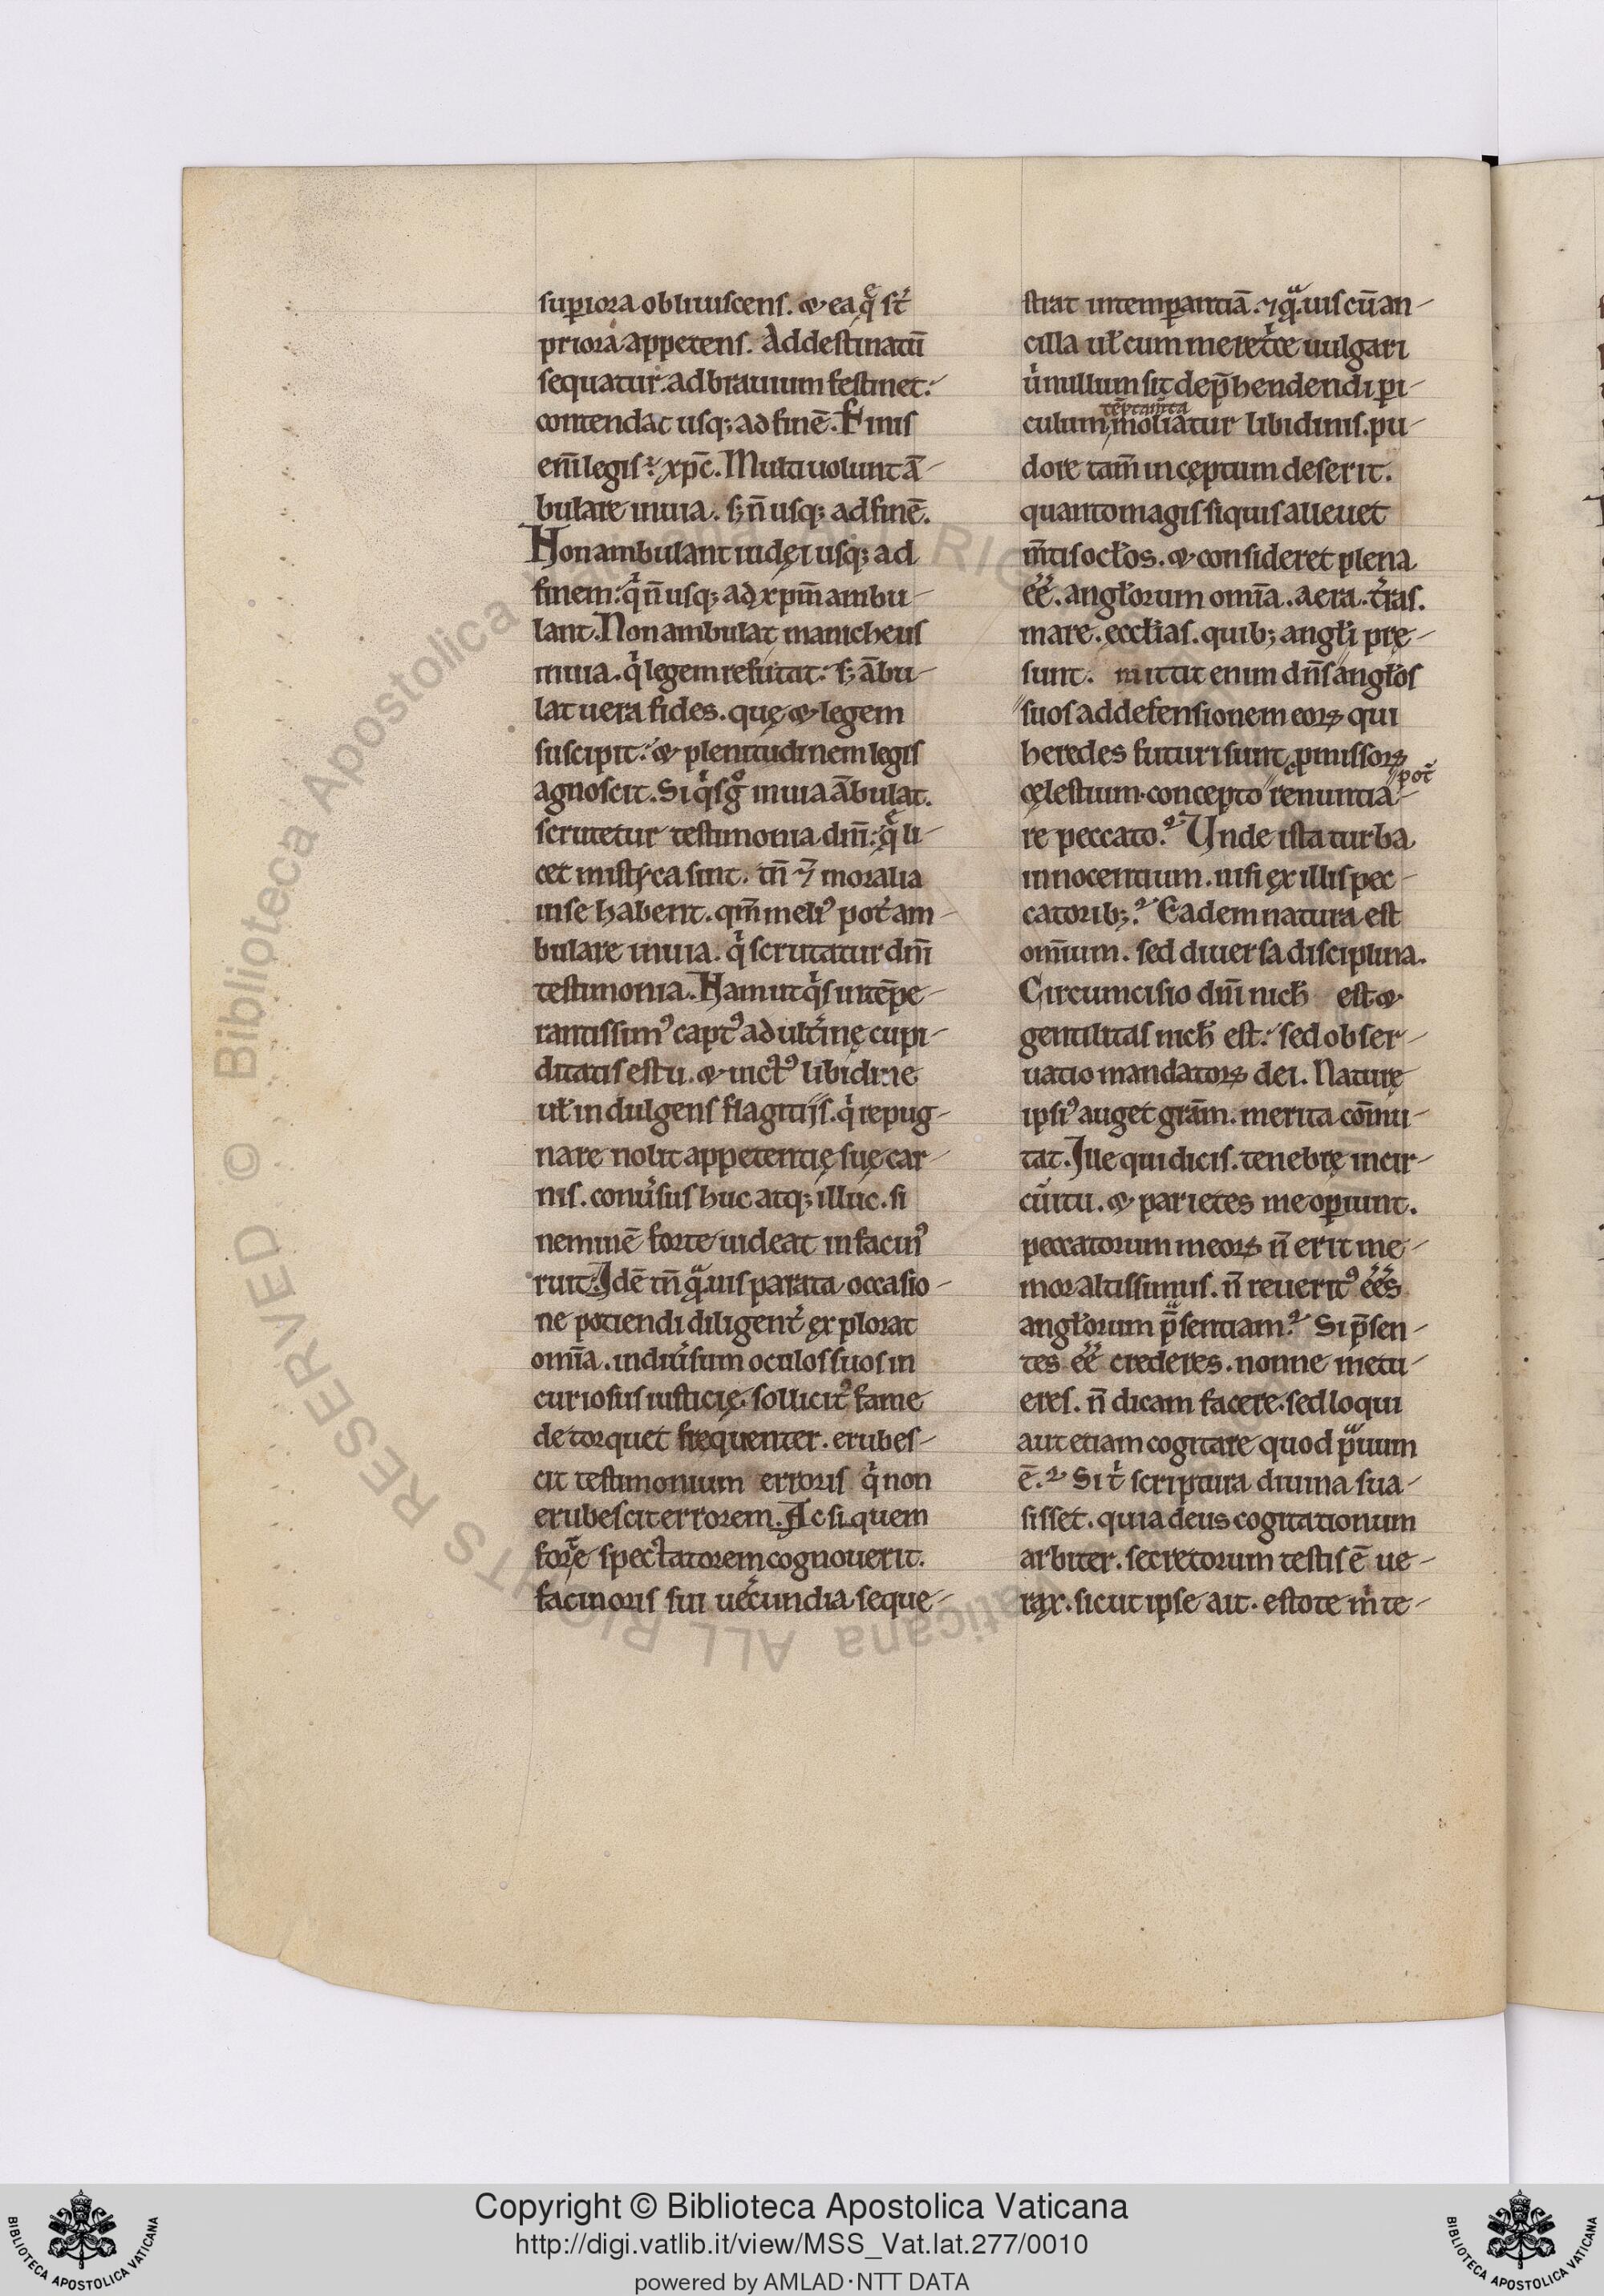 sup̱iora obliuiscens. & ea q̄ st̄
priora appetens. Ad destinatū
sequatur. ad brauium festinet:
contendat usq; ad finē. Finis
eni̅ legis ÷ xp̄c. Multi uolunt ā-
bulare in uia. s; n̄ usq; ad finē.
Non ambulant iudęi usq; ad
finem: qͥ n̄ usq; ad xpm̄ ambu-
lant. Non ambulat manicheus
in uia. qͥ legem refutat: s; ābu-
lat uera fides. quę & legem
suscipit: & plenitudinem legis
agnoscit. Si qͥs gͦ in uia ābulat.
scrutetur testimonia dn̄i: q̄ li-
cet mistyca sint. tn̄ ⁊ moralia
in se habent. qm̄ meliꝰ pot̓ am-
bulare in uia. qͥ scrutatur dn̄i
testimonia. Nam ut qͥs intēpe-
rantissimꝰ captꝰ adult̓inę cupi-
ditatis estu. & uictꝰ libidine
ul̄ indulgens flagitijs. qͥ repug-
nare nolit appetentię suę car-
nis. conu̓sus huc atq; illuc. si
neminē forte uideat in facinꝰ
ruit. Idē tn̄ qͣuis parata occasio-
ne potiendi diligent̓ explorat
omīa. in diu̓sum oculos suos in
curiosus iusticię. sollicitꝰ fame
detorquet frequenter. erubes-
cit testimonium erroris qͥ non
erubescit errorem. Ac si quem
fore spectatorem cognouerit.
facinoris sui uecundia seque-
strat intemp̱antiā. ⁊ qͣuis cū an-
cilla ul̄ cum meret̓ce uulgari
u̓ nullum sit dep̄hendendi p̱i-
tēptam̄ta
culum, moliatur libidinis. pu-
dore tam̄ inceptum deserit.
quanto magis si quis alleuet
m̄tis oclos. & consideret plena
ee̓. anglorum omīa. aera. t̓ras.
mare. ecclias. quib; angli prę-
sunt. mittit enim dn̄s anglos
suos ad defensionem eoꝝ qui
heredes futuri sunt p̱missoꝝ
pot̄
cęlestium. concepto renuntia-
re peccato? Unde ista turba
innocentium. nisi ex illis pec-
catorib;? Eadem natura est
omīum. sed diuersa disciplina.
Circumcisio dn̄i nich̄ est &
gentilitas nich̄ est: sed obser-
uatio mandatoꝝ dei. Naturę
ipsiꝰ auget grām. merita cōmu-
tat. Ille qui dicis. tenebrę in cir-
cūitu. & parietes me op̱iunt.
peccatorum meoꝝ n̄ erit me-
mor altissimus. n̄ reueritꝰ ee̓s
anglorum p̄sentiam? Si p̄sen-
tes ee̓ crederes. nonne metu-
eres. n̄ dicam facere. sed loqui
aut etiam cogitare quod pͣuum
ē? Sit̓ scriptura diuina sua-
sisset. quia deus cogitationum
arbiter. secretorum testis ē ue-
rax. sicut ipse ait. estote in̄ te-
Copyright © Biblioteca Apostolica Vaticana
http://digi.vatlib.it/view/MSS_Vat.lat.277/0010
powered by AMLAD·NTT DATA
BIBLIOTECA APOSTOLICA VATICANA
BIBLIOTECA APOSTOLICA VATICANA
© Biblioteca Apostolica Vaticana ALL RIGHTS RESERVED